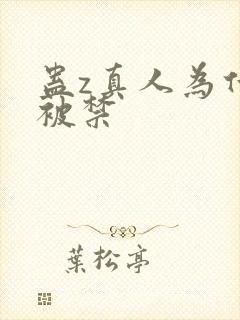 蛊z真人为什
被禁
葉松亭